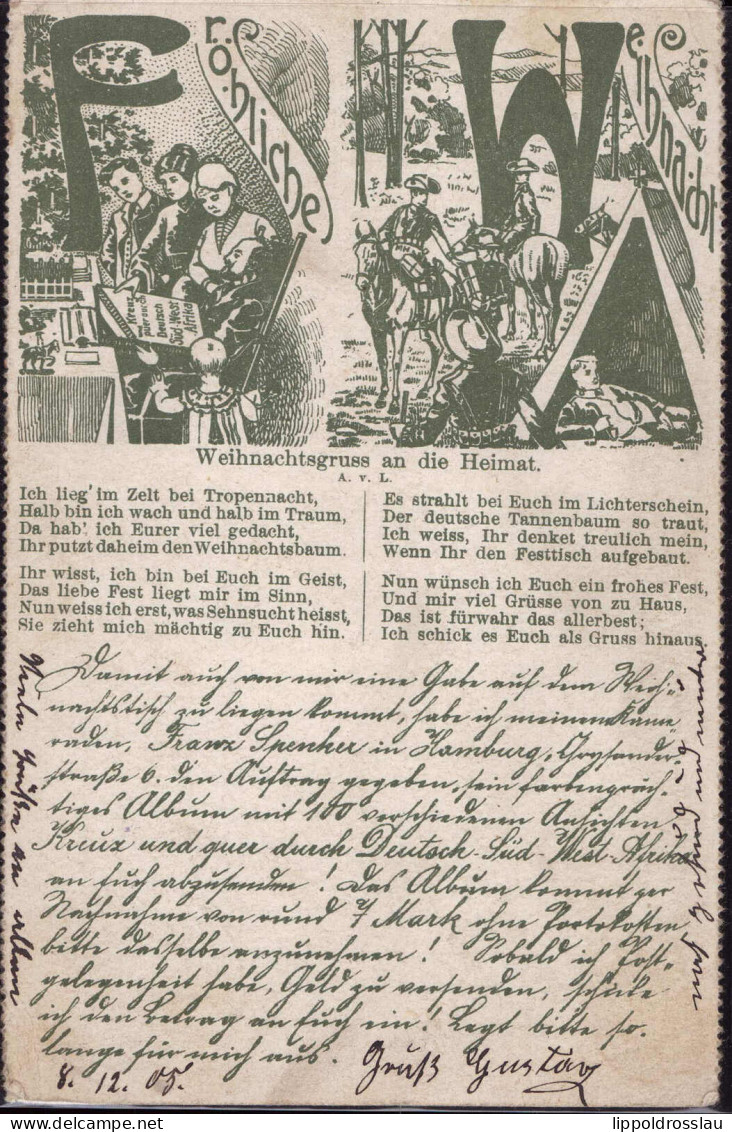 Fröhliche Weihnacht
Kreuz
und quer durch
Deutsch
Süd-West
Afrika
Weihnachtsgruss an die Heimat.
A. v. L.
Ich lieg' im Zelt bei Tropennacht,
Halb bin ich wach und halb im Traum,
Da hab' ich Eurer viel gedacht,
Ihr putzt daheim den Weihnachtsbaum.
Ihr wisst, ich bin bei Euch im Geist,
Das liebe Fest liegt mir im Sinn,
Nun weiss ich erst, was Sehnsucht heisst,
Sie zieht mich mächtig zu Euch hin.
Es strahlt bei Euch im Lichterschein,
Der deutsche Tannenbaum so traut,
Ich weiss, Ihr denket treulich mein,
Wenn Ihr den Festtisch aufgebaut.
Nun wünsch ich Euch ein frohes Fest,
Und mir viel Grüsse von zu Haus,
Das ist fürwahr das allerbest;
Ich schick es Euch als Gruss hinaus.
Damit auch von mir eine Gabe auf dem Weih-
nachtstisch zu liegen kommt, habe ich meinem Kame
raden, Franz Spenker in Hamburg, Grysander-
straße 6. den Auftrag gegeben, sein farbenpräch-
tiges Album mit 100 verschiedenen Ansichten
Kreuz und quer durch Deutsch-Süd-West-Afrika
an Euch abzusenden! Das Album kommt per
Nachnahme von rund 7 Mark ohne Portokosten
bitte dasselbe anzunehmen! Sobald ich Post-
gelegenheit habe, Geld zu versenden, schicke
ich den Betrag an Euch ein! Legt bitte so-
lange für mich aus.
8. 12. 05. Gruß Gustav
Viele Grüße an allen
gesund und munter